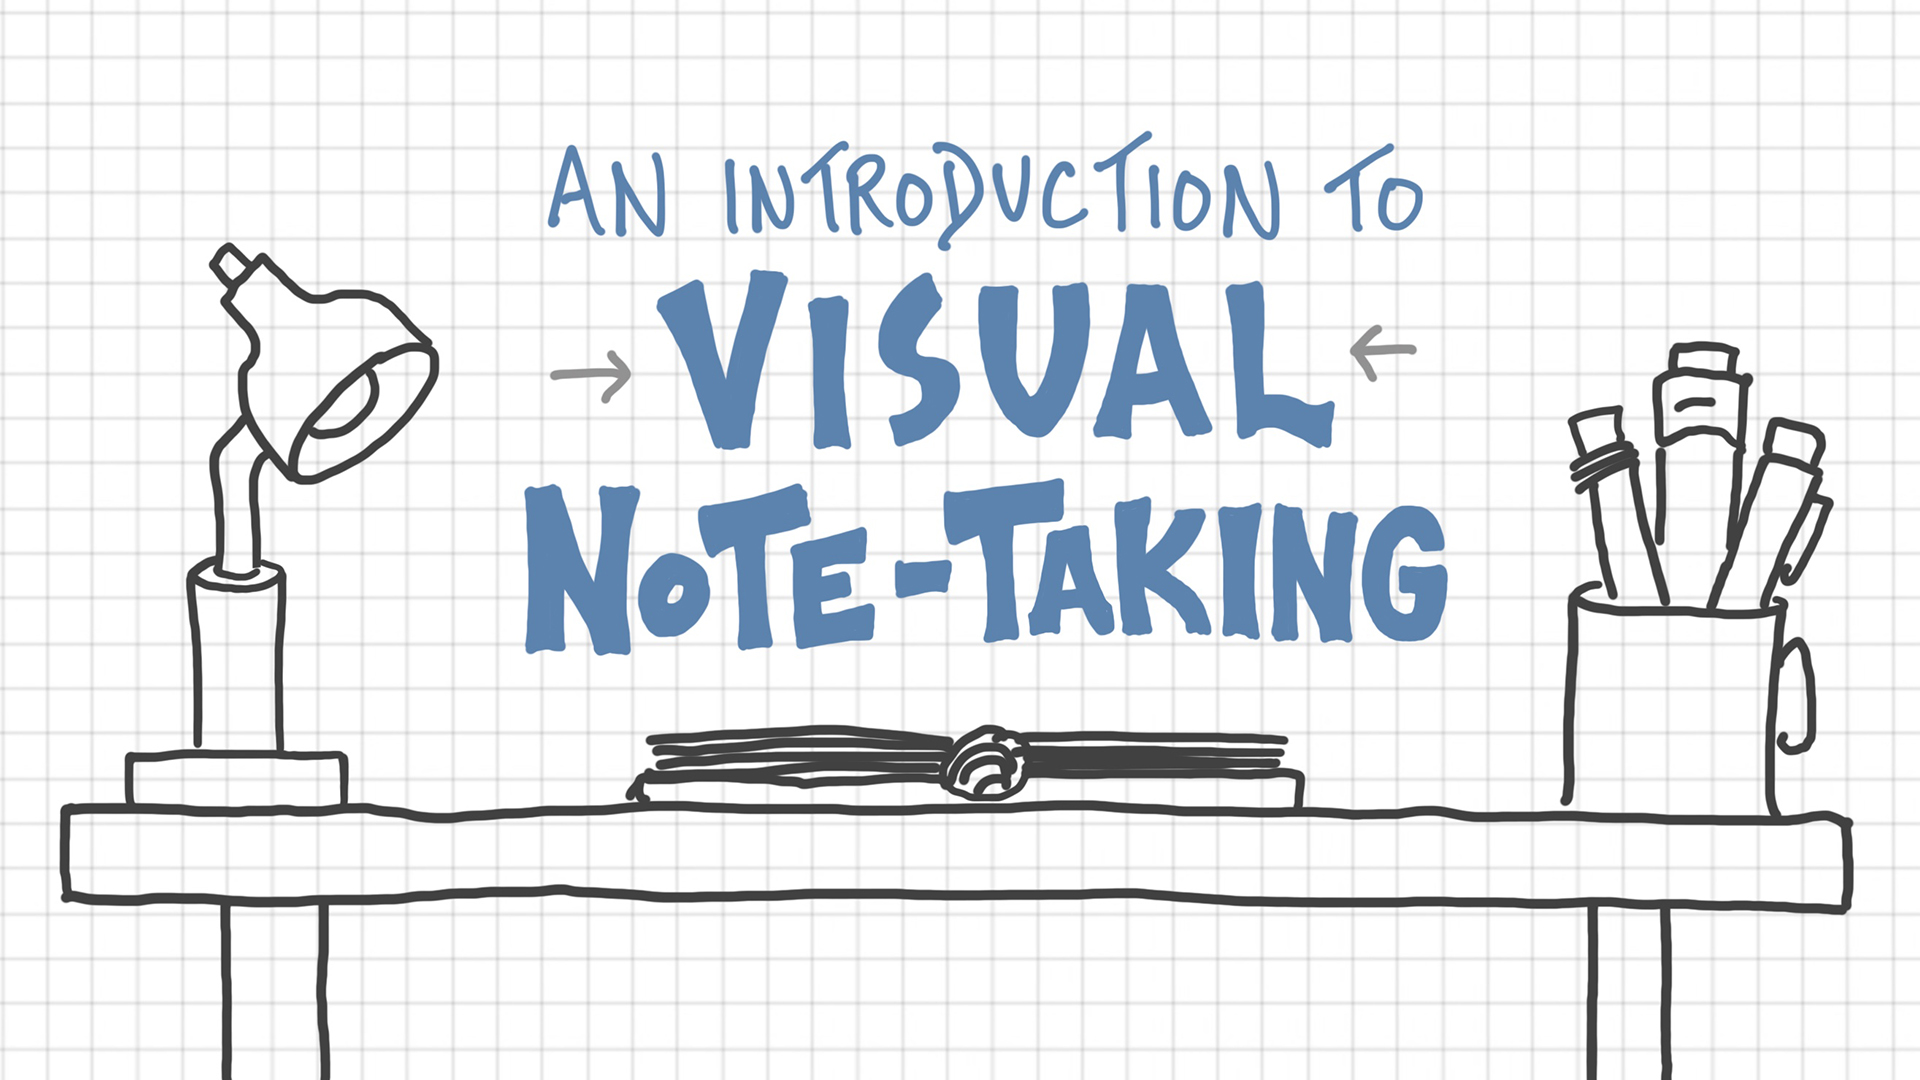 AN INTRODUCTION TO
VISUAL
NOTE-TAKING